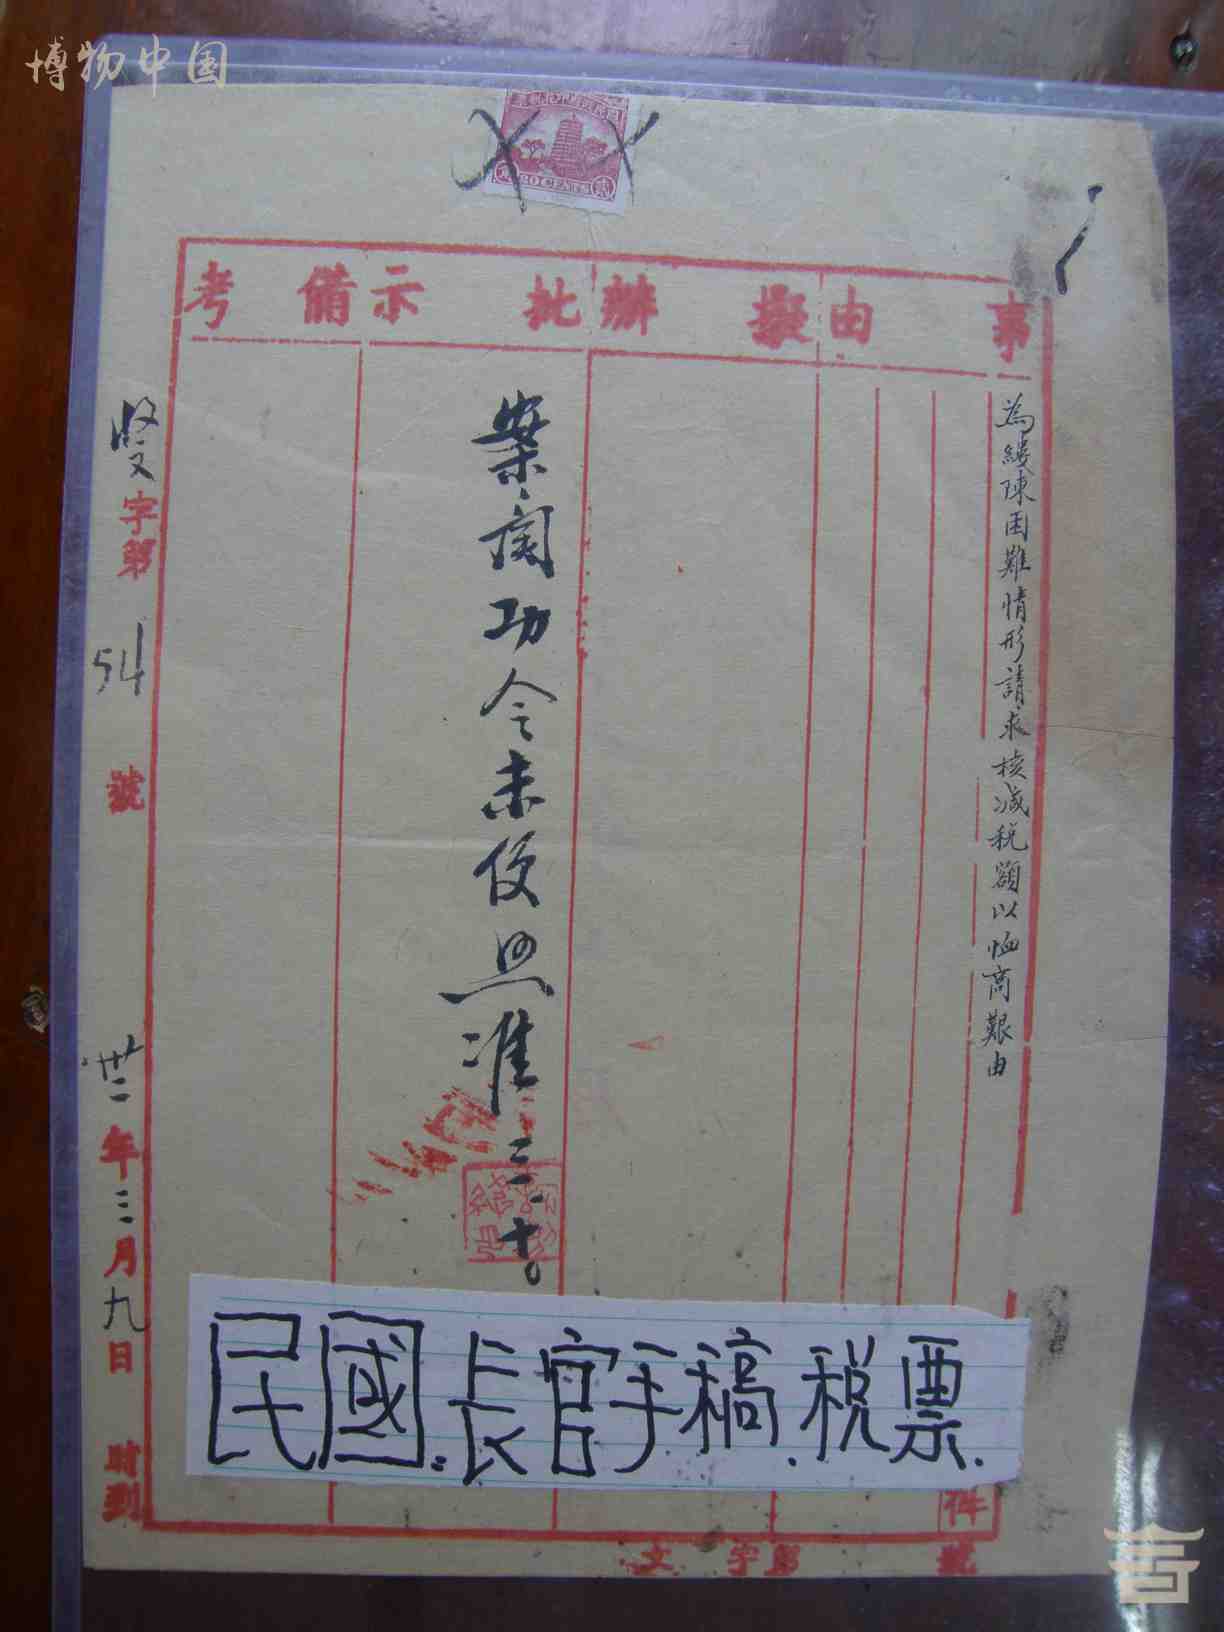 博物中国
20 CENTS
事由
擬辦
批示
備考
為縷陳困難情形請求核減税額以恤商艱由
案關功令未便照准 三.十。
收文字第54號
廿二年三月九日 時到
民國:長官手稿.税票.
件
文 字第 號